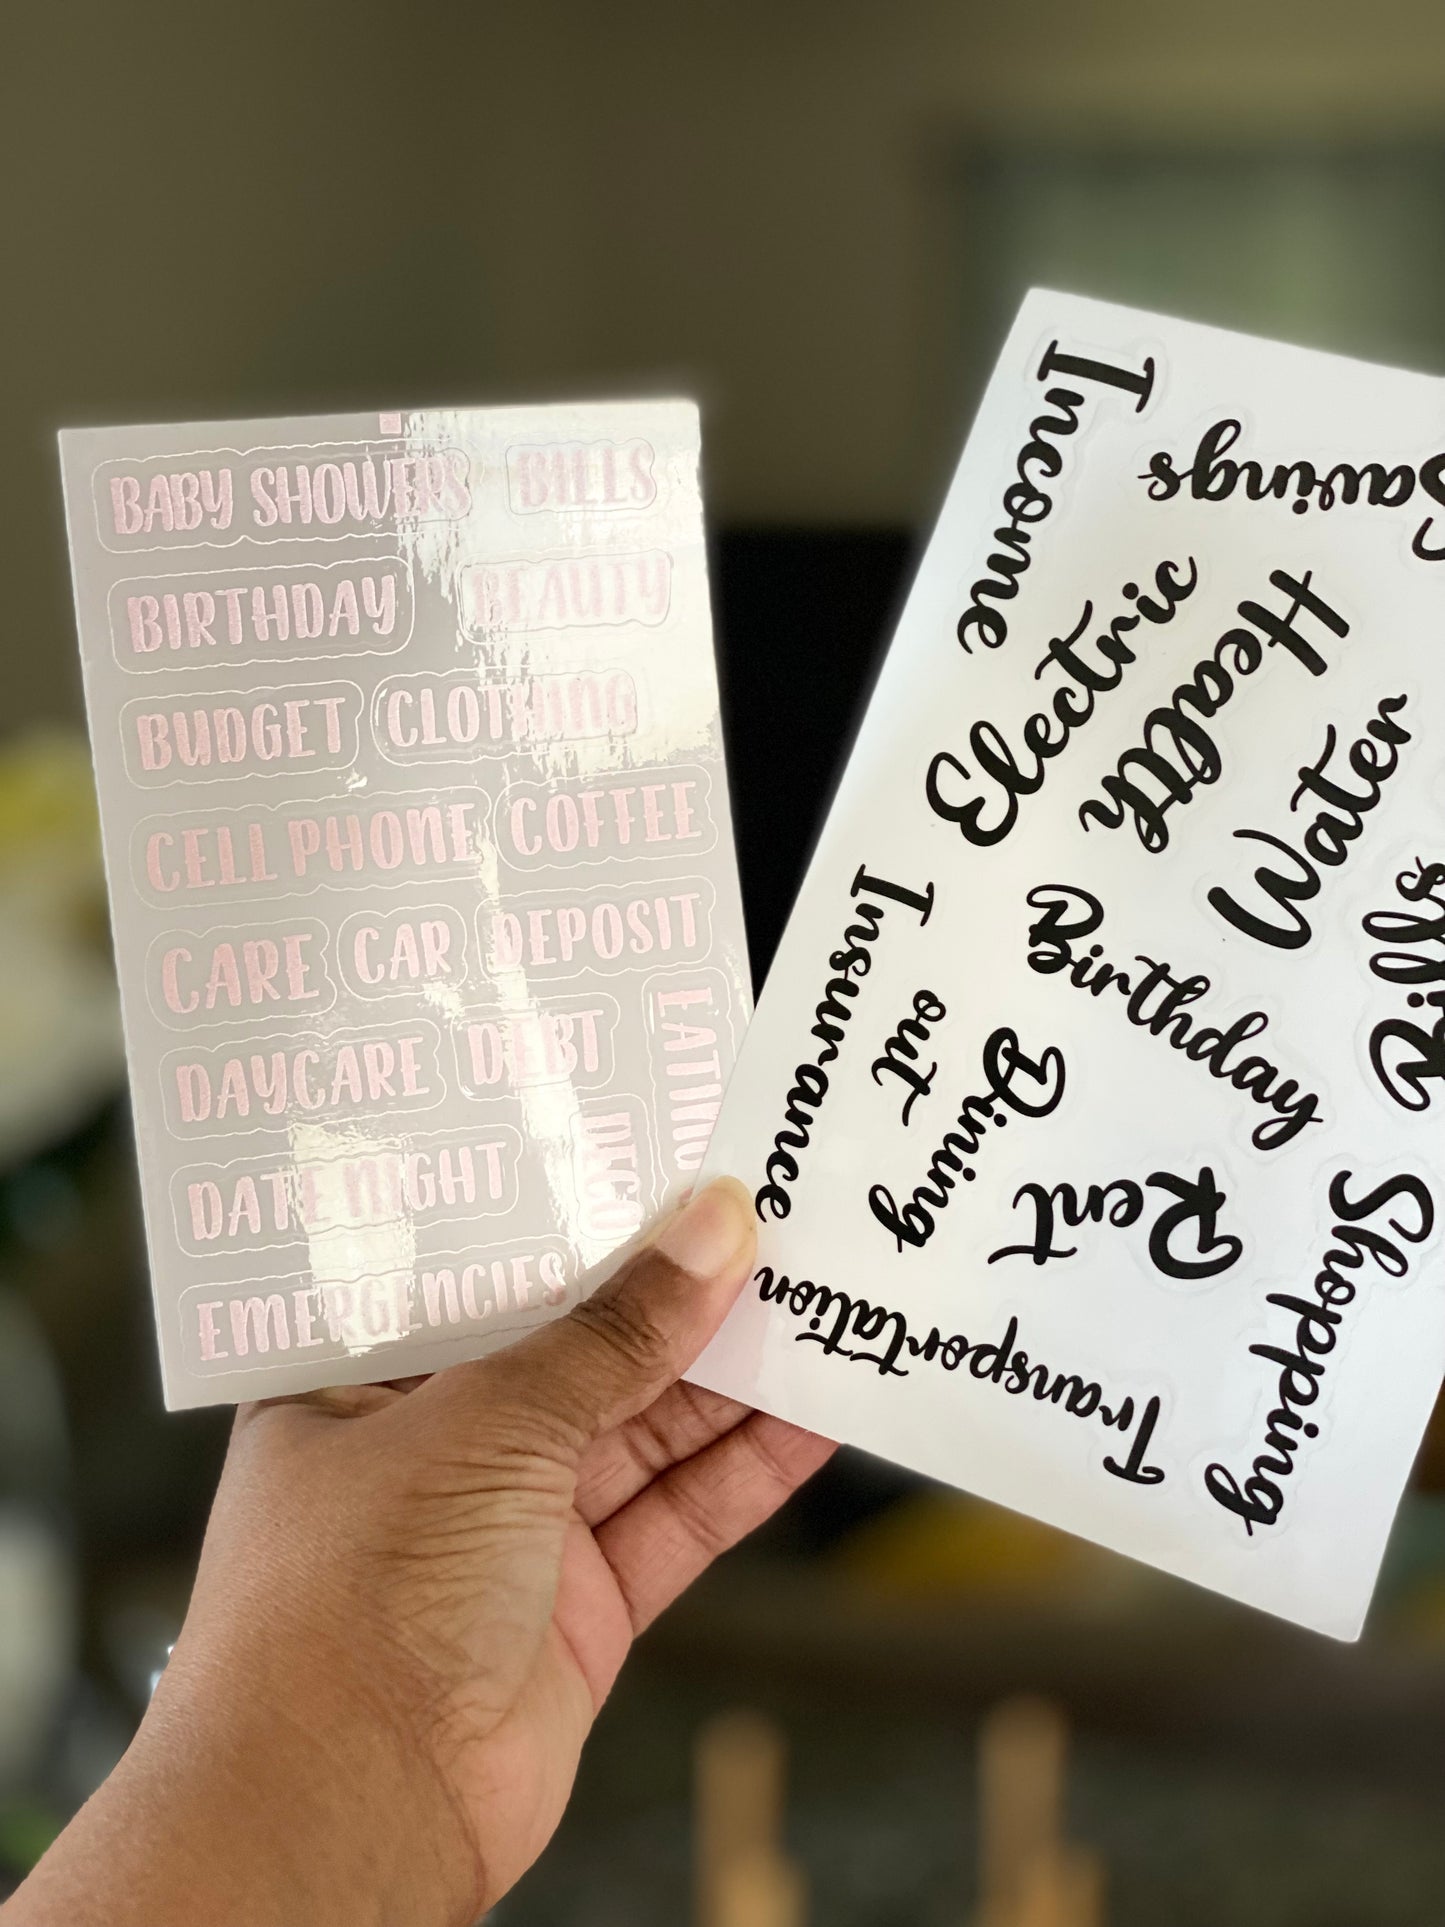 BABY SHOWERS BILLS
BIRTHDAY BEAUTY
BUDGET CLOTHING
CELL PHONE COFFEE
CARE CAR DEPOSIT
DAYCARE DEBT EATING
DATE NIGHT DECO
EMERGENCIES
Income
Savings
Electric
Health
Water
Insurance
Dining
out
Birthday
Gifts
Rent
Transportation
Shopping